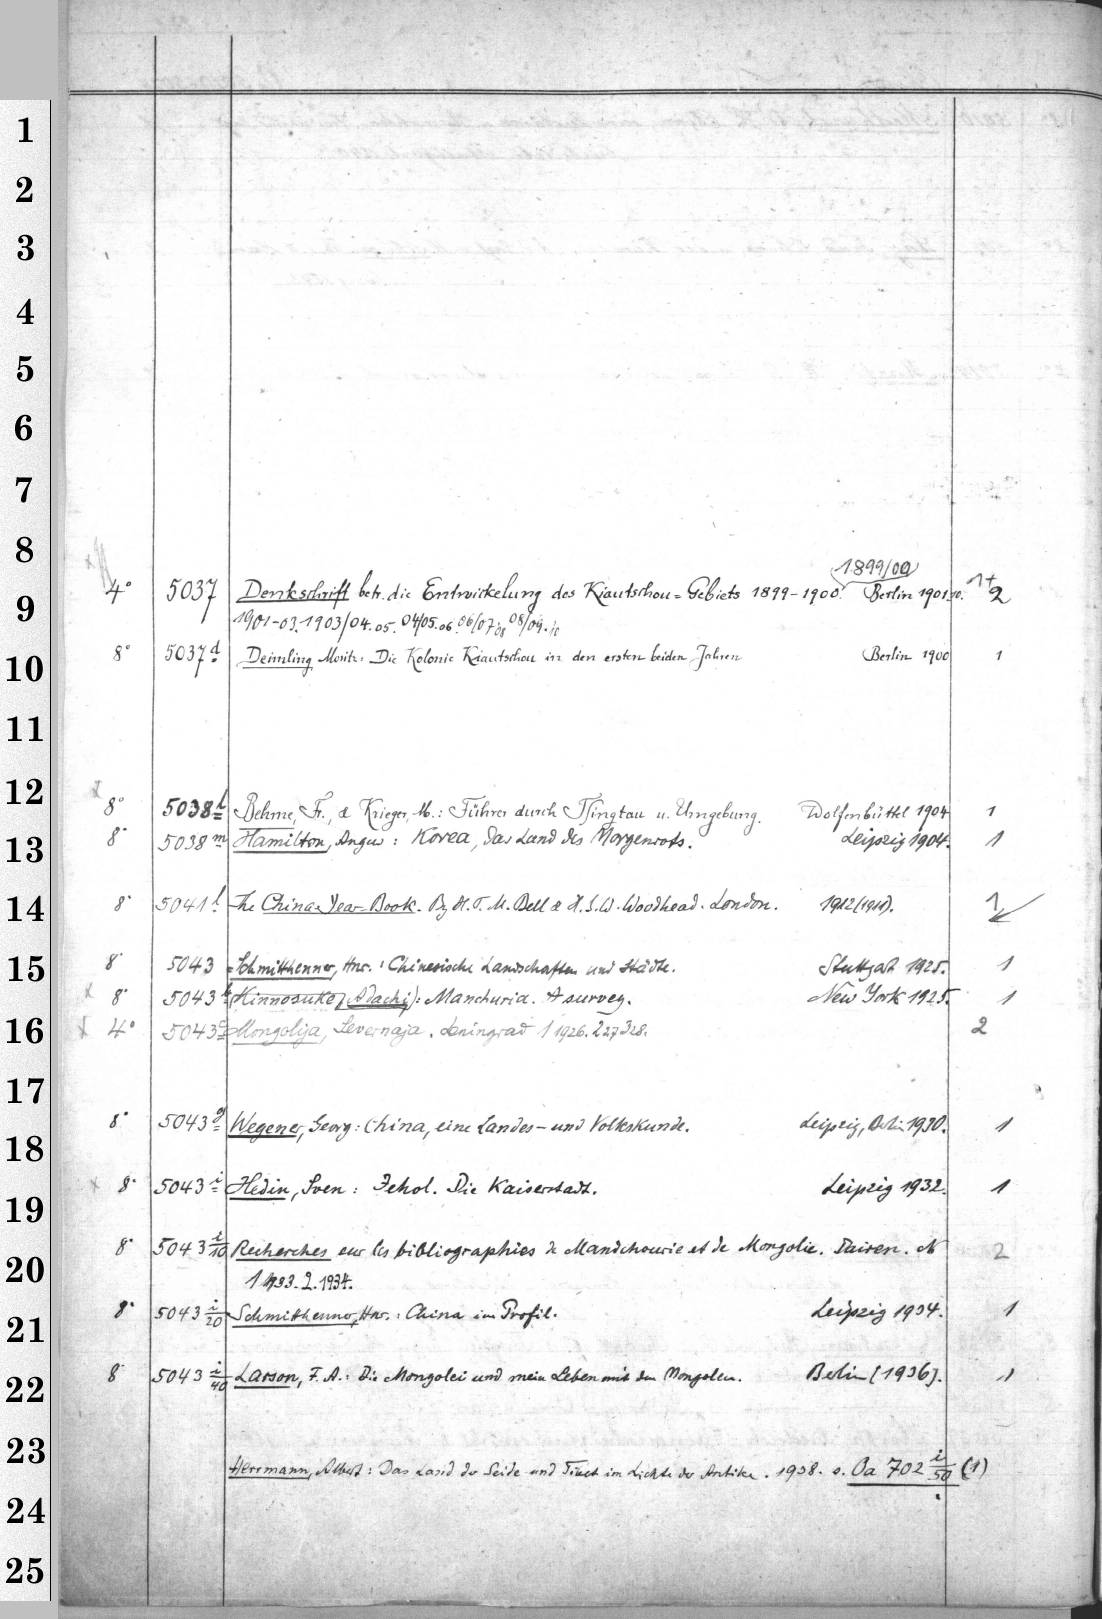 1
2
3
4
5
6
7
8
1899/00
9 4° 5037 Denkschrift betr. die Entwickelung des Kiautschou-Gebiets 1899-1900. Berlin 1901. 1+2
1901-03. 1903/04. 05. 04/05. 06. 06/07. 08 08/09. 10
10 8° 5037d Deimling Moritz: Die Kolonie Kiautschou in den ersten beiden Jahren Berlin 1900 1
11
12 8° 5038l Behme, Fr., & Krieger, M.: Führer durch Tsingtau u. Umgebung. Wolfenbüttel 1904 1
13 8° 5038m Hamilton, Angus: Korea, das Land des Morgenrots. Leipzig 1904. 1
14 8° 5041l The China Year-Book. By H. T. M. Bell & H. G. W. Woodhead. London. 1912 (1912). 1
15 8° 5043 Schmitthenner, Hnr.: Chinesische Landschaften und Städte. Stuttgart 1925. 1
8° 5043b (Kinnosuke, Adachi): Manchuria. A survey. New York 1925. 1
16 4° 5043c Mongolija, Severnaja. Leningrad 1 1926. 2 27 3 28. 2
17
8° 5043g Wegener, Georg: China, eine Landes- und Volkskunde. Leipzig, Berlin 1930. 1
18
8° 5043i Hedin, Sven: Jehol. Die Kaiserstadt. Leipzig 1932. 1
19
8° 5043 i/10 Recherches sur les bibliographies de Mandchourie et de Mongolie. Dairen. N 2
20
1 1933. 2. 1934.
21 8° 5043 i/20 Schmitthenner, Hnr.: China im Profil. Leipzig 1934. 1
22 8° 5043 i/40 Larson, F. A.: Die Mongolei und mein Leben mit den Mongolen. Berlin [1936]. 1
23
Herrmann, Albert: Das Land der Seide und Tibet im Lichte der Antike. 1938. s. Oa 702 i/50 (1)
24
25